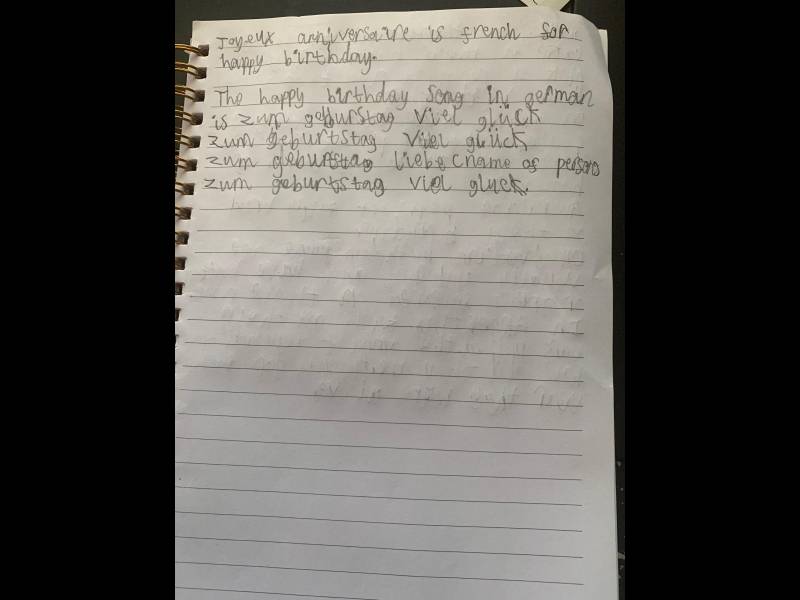 Joyeux anniversaire is french for
happy birthday.
The happy birthday song in german
is zum geburstag viel glück
zum geburtstag viel glück
zum geburtstag liebe (name of person)
zum geburtstag viel gluck.